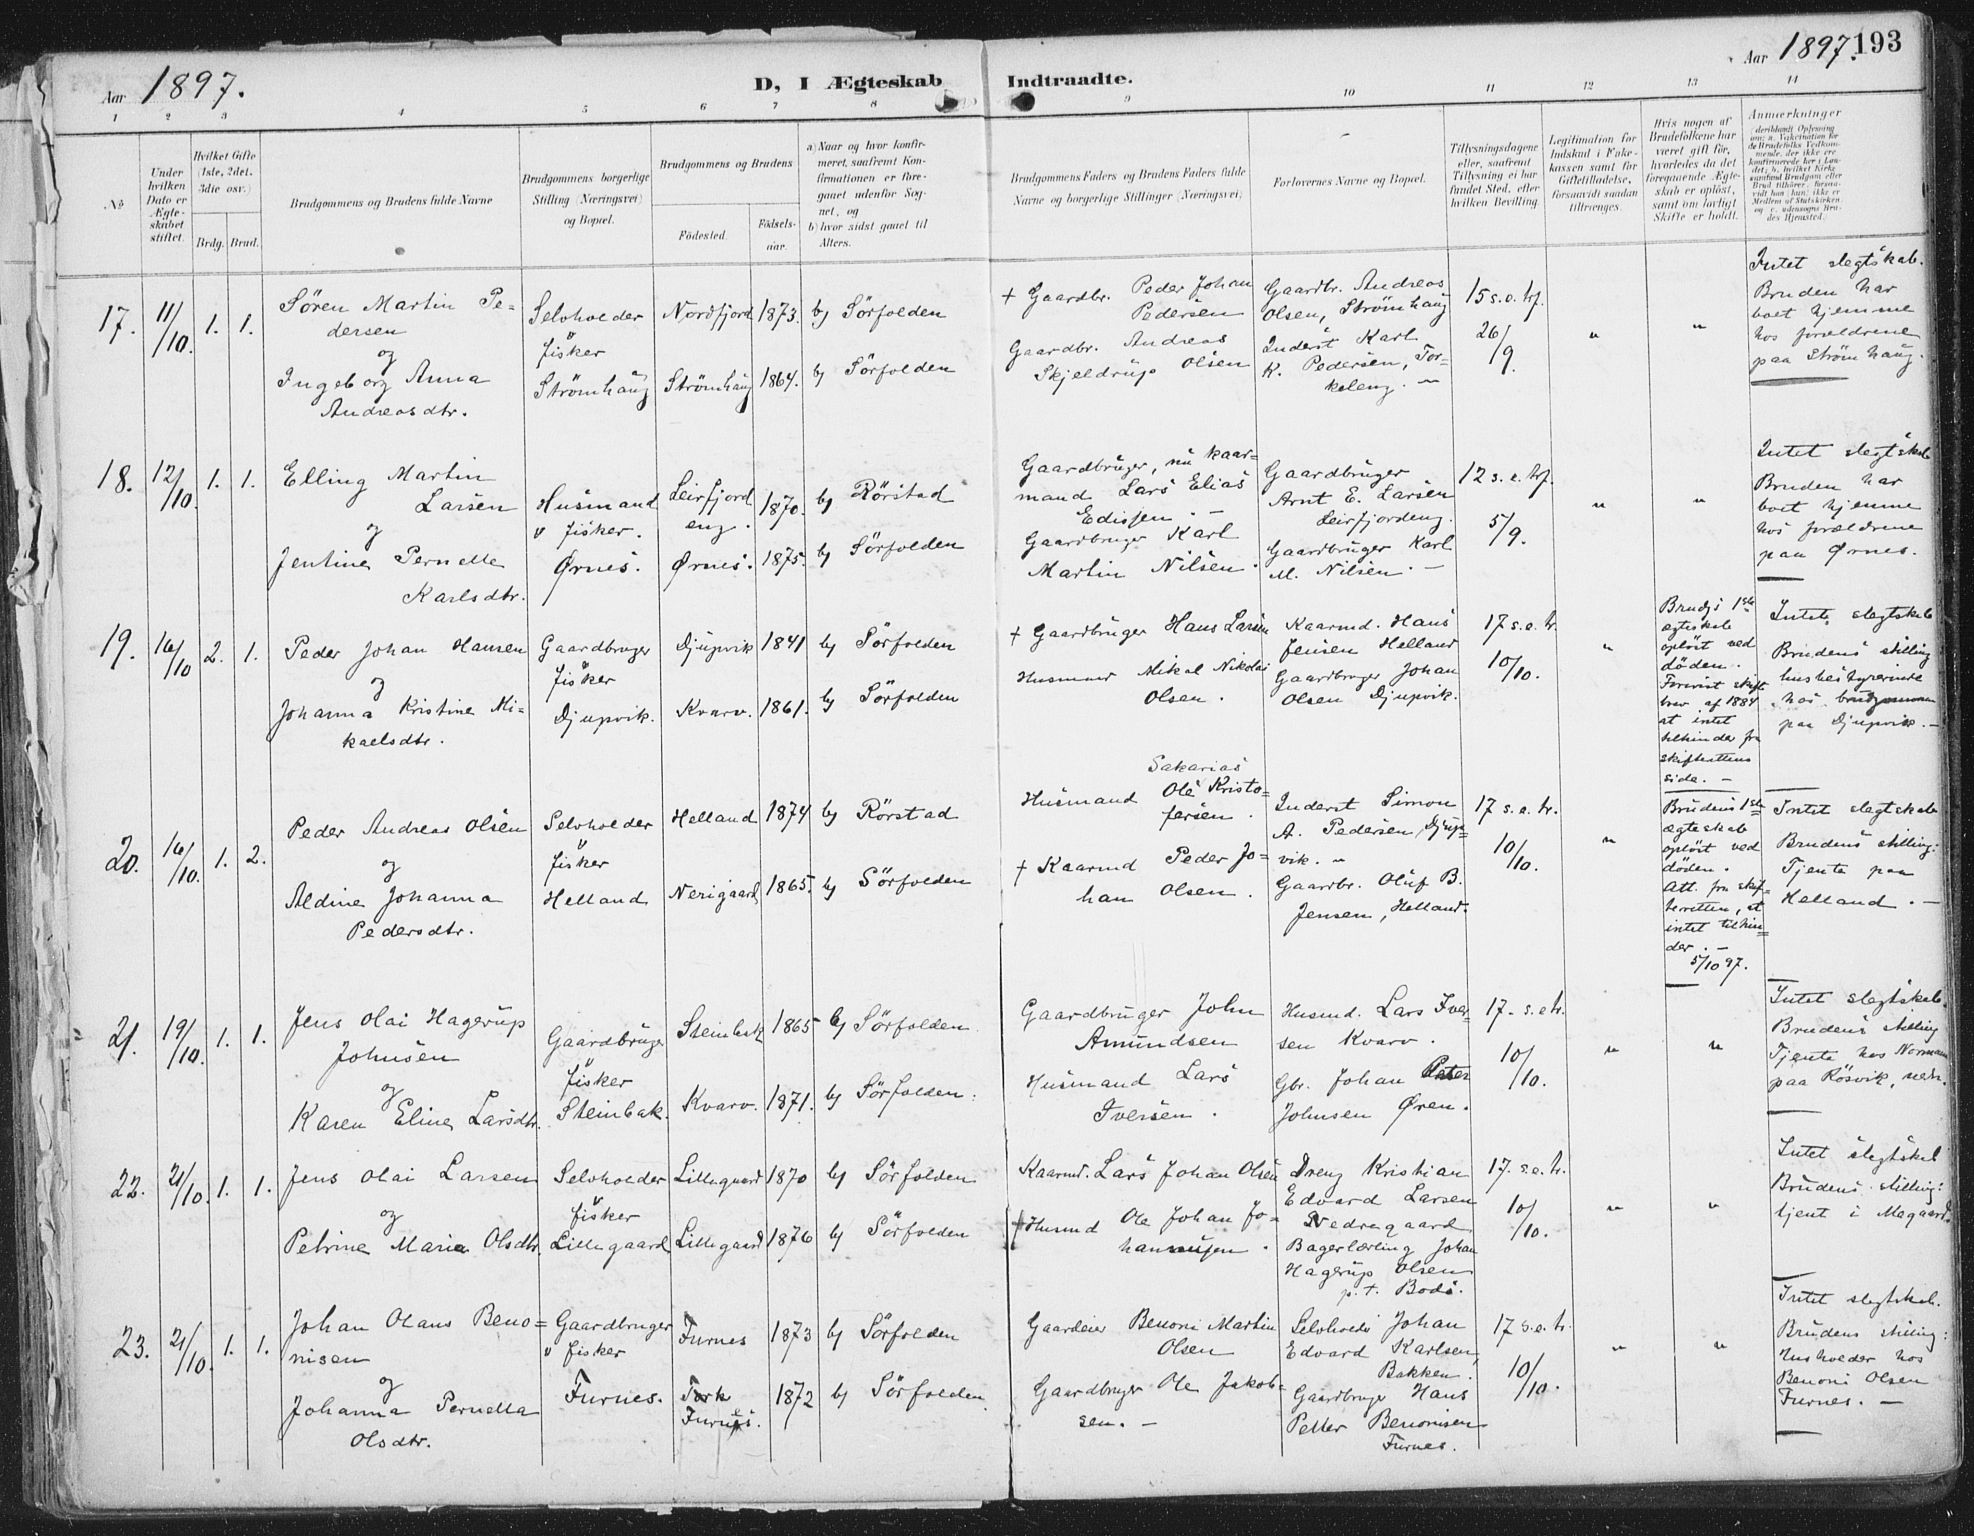 Aar 1897.
D, I Ægteskab Indtraadte.
Aar 1897. 193
1 2 3 4 5 6 7 8 9 10 11 12 13 14
No
Under hvilken Dato er Ægteskabet stiftet.
Hvilket Gifte (1ste, 2det, 3die osv.)
Brdg. Brud.
Brudgommens og Brudens fulde Navne
Brudgommens borgerlige Stilling (Næringsvei) og Bopæl.
Brudgommens og Brudens
Fødested.
Fødselsaar.
a) Naar og hvor konfirmeret, saafremt Konfirmationen er foregaaet udenfor Sognet, og
b) hvor sidst gaaet til Alters.
Brudgommens Faders og Brudens Faders fulde Navne og borgerlige Stillinger (Næringsvei)
Forlovernes Navne og Bopæl.
Tillysningsdagene eller, saafremt Tillysning ei har fundet Sted, efter hvilken Bevilling.
Legitimation for Indskud i Fakekassen samt for Giftetilladelse, forsaavidt saadan tiltrænges.
Hvis nogen af Brudefolkene har været gift før, hvorledes da det foregaaende Ægteskab er opløst, samt om lovligt Skifte er holdt.
Anmærkninger
17. 11/10. 1. 1.
Sören Martin Pe-
dersen
og
Ingeborg Anna
Andreasdtr.
Selvholder
fisker
Strömhaug
Nordfjord 1873. b) Sörfolden
Strömhaug 1864. b) Sörfolden
+ Gaardbr. Peder Johan
Pedersen
Gaardbr. Andreas
Skjeldrup Olsen
Gaardbr. Andreas
Olsen, Strömhaug
Inderst Karl
K. Pedersen, Tor-
keleng. -
15 s. e. trf.
26/9.
" "
Intet slegtskab.
Bruden har
boet hjemme
hos forældrene
paa Strömhaug.
18. 12/10. 1. 1.
Elling Martin
Larsen
og
Jentine Pernelle
Karlsdtr.
Husmand
v fisker.
Ørnes.
Leirfjord
eng. 1870. b) Rörstad
Ørnes. 1875. b) Sörfolden
Gaardbruger, nu kaar-
mand Lars Elias
Edissen. -
Gaardbruger Karl
Martin Nilsen.
Gaardbruger
Arnt E. Larsen
Leirfjordeng.
Gaardbruger Karl
M. Nilsen. -
12 s. e. trf.
5/9.
" "
Intet slegtskab
Bruden har
boet hjemme
hos forældrene
paa Ørnes.
19. 16/10 2. 1.
Peder Johan Hansen
og
Johanna Kristine Mi-
kaelsdtr.
Gaardbruger
fisker
Djupvik.
Djupvik 1841 b) Sörfolden
Kvarv. 1861. b) Sörfolden
+ Gaardbruger Hans Larsen
Husmand Mikal Nikolai
Olsen.
Kaarmd. Hans
Jensen Helland
Gaardbruger Johan
Olsen Djupvik.
17 s. e. tr.
10/10.
"
Brudgs 1ste
ægteskab
oplöst ved
döden.
Forevist skifte
brev af 1884
at intet
tilhinder fra
skifterettens
side. -
Intet slegtskab
Brudens stilling
husbestyrerinde
hos brudgommen
paa Djupvik. -
20. 16/10. 1. 2.
Peder Andreas Olsen
og
Aldine Johanna
Pedersdtr.
Selvholder
fisker
Helland
Helland 1874 b) Rörstad
Nerigaard 1865. b) Sörfolden
Sakarias
Husmand Ole Kristo-
fersen.
+ Kaarmd Peder Jo-
han Olsen.
Inderst Simon
A. Pedersen, Djup-
vik. -
Gaardbr. Oluf B.
Jensen, Helland.
17 s. e. tr.
10/10.
"
Brudens 1ste
ægteskab
oplöst ved
döden.
Att. fra skif-
teretten, at
intet tilhin-
der. -
5/10 97.
Intet slegtskab
Brudens stilling:
Tjente paa
Helland. -
21. 19/10. 1. 1.
Jens Olai Hagerup
Johnsen
og
Karen Eline Larsdtr.
Gaardbruger
fisker
Steinbak.
Steinbak 1865 b) Sörfolden
Kvarv. 1871. b) Sörfolden.
Gaardbruger John
Amundsen
Husmand Lars
Iversen.
Husmd. Lars Iver-
sen Kvarv.
Gbr. Johan Peter
Johnsen Øren.
17. s. e tr.
10/10.
" "
Intet slegtskab.
Brudens stilling
Tjente hos Normann
paa Rösvik, nedr.
22. 21/10. 1. 1.
Jens Olai Larsen
og
Petrine Maria Olsdtr.
Selvholder
fisker
Lillegaard
Lillegaard 1870 b) Sörfolden
Lillegaard 1876 b) Sörfolden
Kaarmd. Lars Johan Olsen
+ Husmd Ole Johan Jo-
hannesen.
Dreng Kristian
Edvard Larsen
Nedregaard
Bagerlærling Johan
Hagerup Olsen
p.t. Bodö.
17. s. e. tr.
10/10.
" "
Intet slegtskab
Brudens stilling:
tjent i Megaard.
23. 21/10. 1. 1.
Johan Olaus Beno-
nisen
og
Johanna Pernella
Olsdtr.
Gaardbruger
v fisker
Furnes.
Furnes 1873 b) Sörfolden
Furnes. 1872 b) Sörfolden
Gaardeier Benoni Martin
Olsen
Gaardbruger Ole Jakob-
sen. -
Selvhold. Johan
Edvard Karlsen,
Bakken.
Gaardbruger Hans
Petter Benonisen
Furnes.
17 s. e. tr.
10/10.
" "
Intet slegtskab.
Brudens stilling:
Husholder hos
Benoni Olsen
Furnes. -